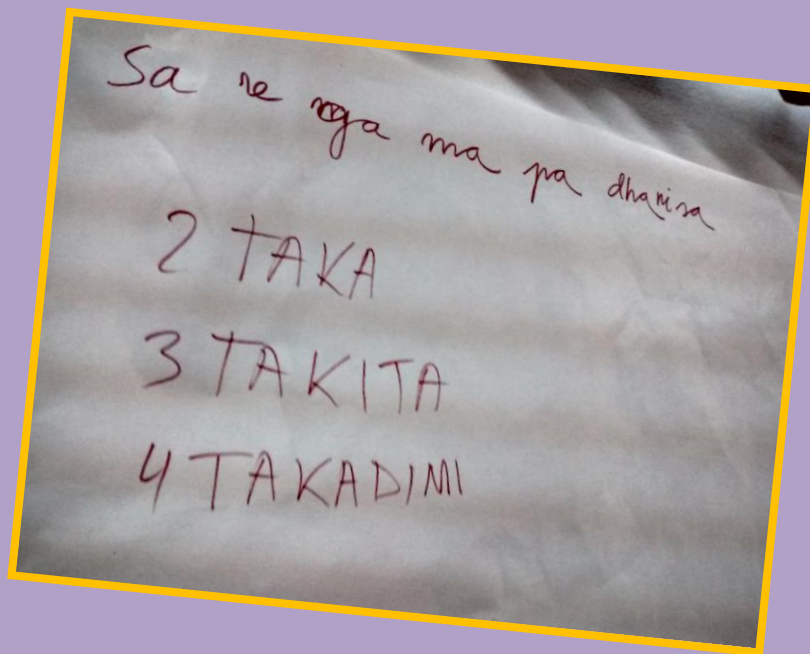 Sa re ga ma pa dhanisa
2 TAKA
3 TAKITA
4 TAKADIMI